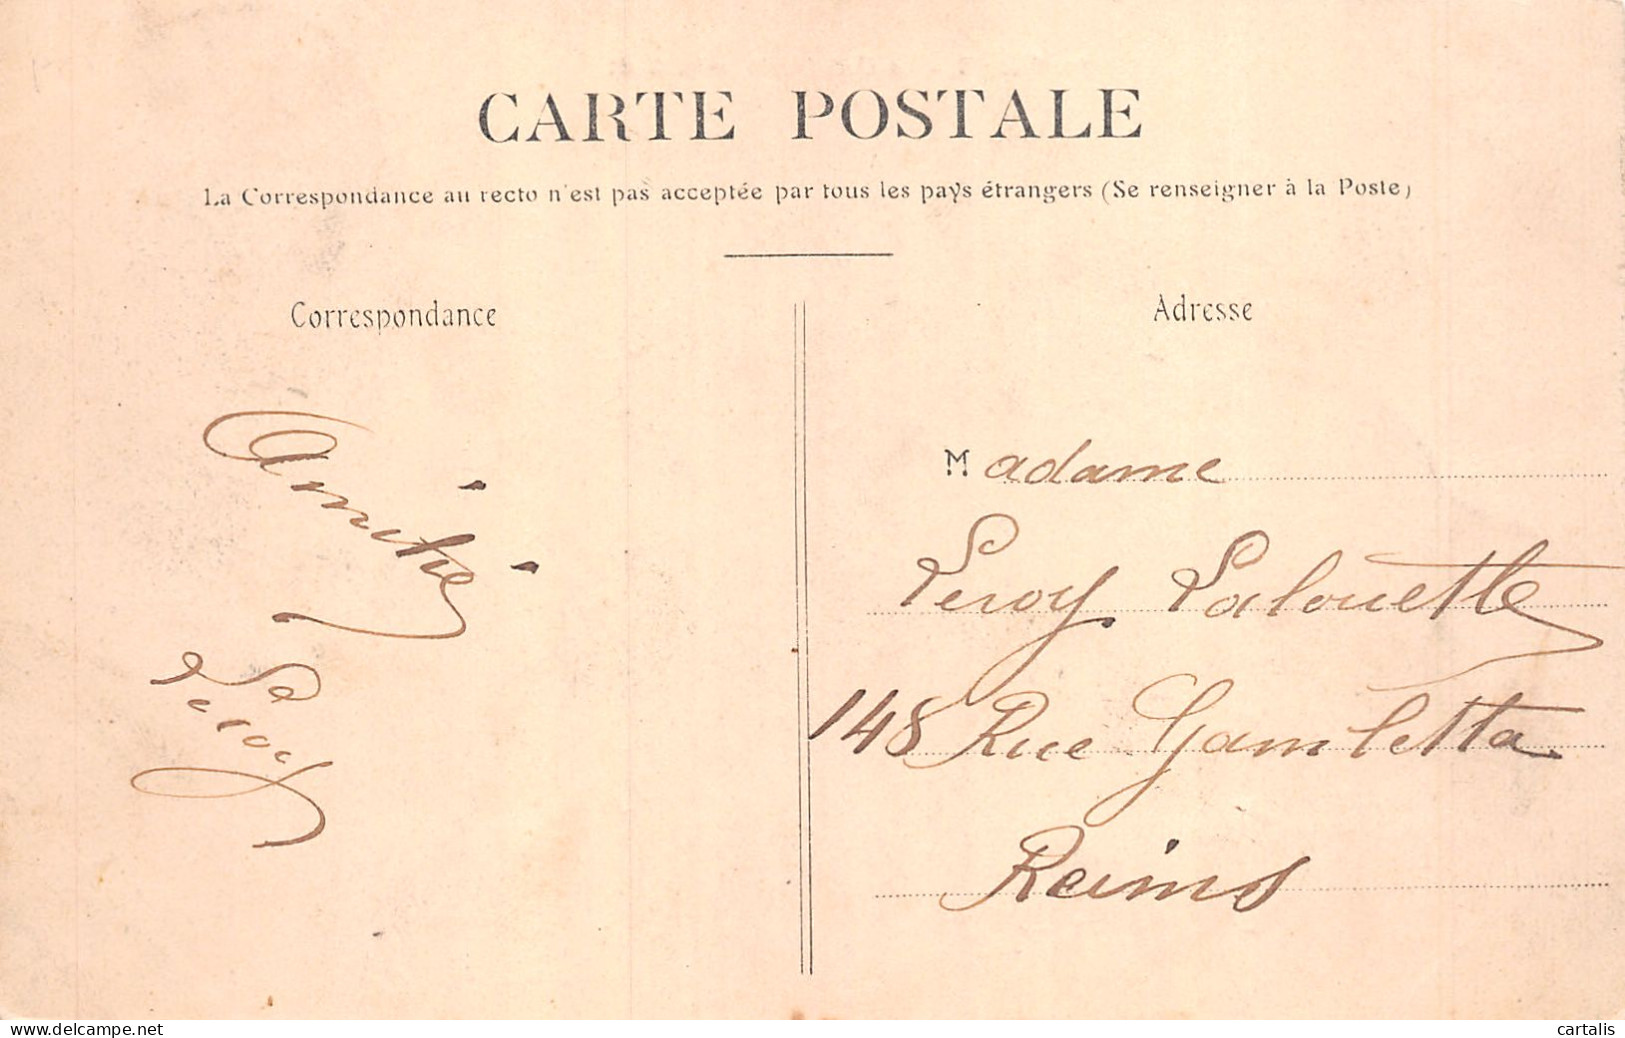 CARTE POSTALE
La Correspondance au recto n'est pas acceptée par tous les pays étrangers (Se renseigner à la Poste)
Correspondance
Amitié
Leroy
Adresse
Madame
Leroy Lalouette
148 Rue Gambetta
Reims
www.delcampe.net
cartalis